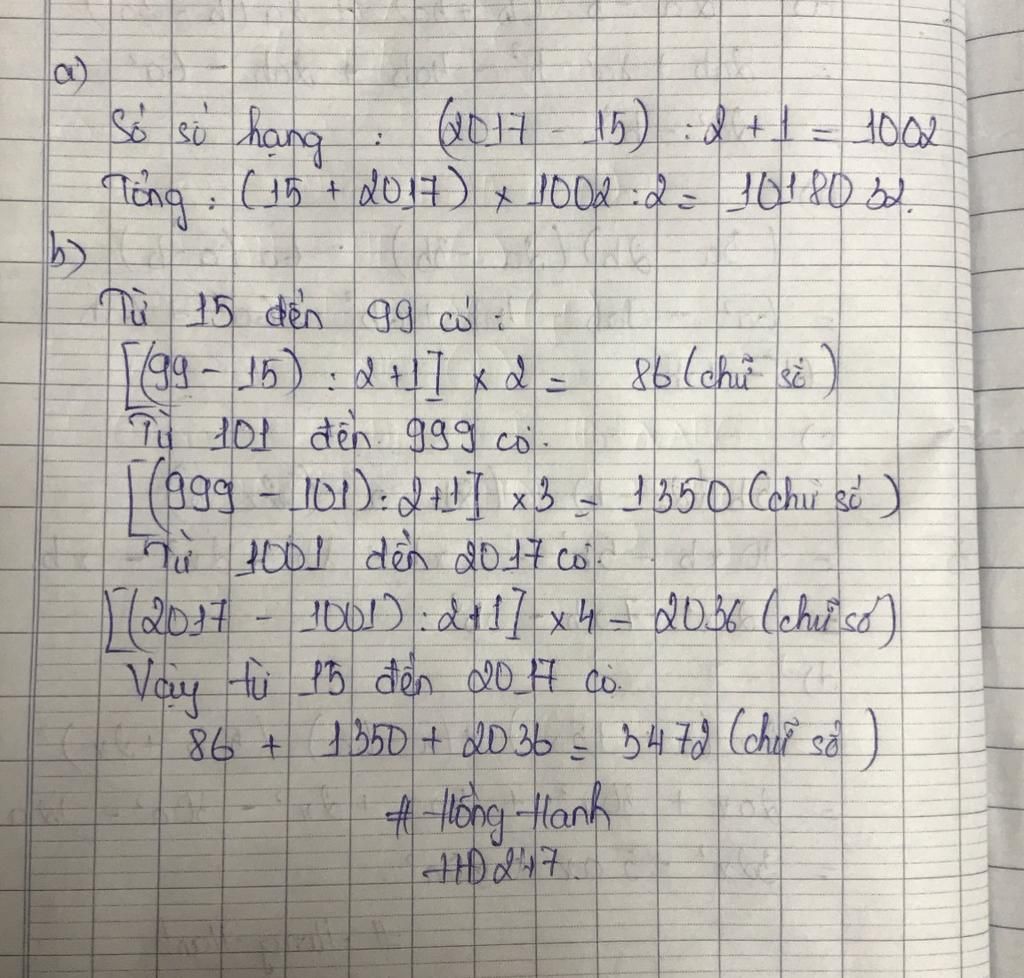 a)
Số số hạng : (2017 - 15) : 2 + 1 = 1002
Tổng : (15 + 2017) × 1002 : 2 = 1018032.
b)
Từ 15 đến 99 có :
[(99 - 15) : 2 + 1] × 2 = 86 (chữ số)
Từ 101 đến 999 có.
[(999 - 101) : 2 + 1] × 3 = 1350 (chữ số)
Từ 1001 đến 2017 có.
[(2017 - 1001) : 2 + 1] × 4 = 2036 (chữ số)
Vậy từ 15 đến 2017 có.
86 + 1350 + 2036 = 3472 (chữ số)
# Hồng Hanh
HD247.